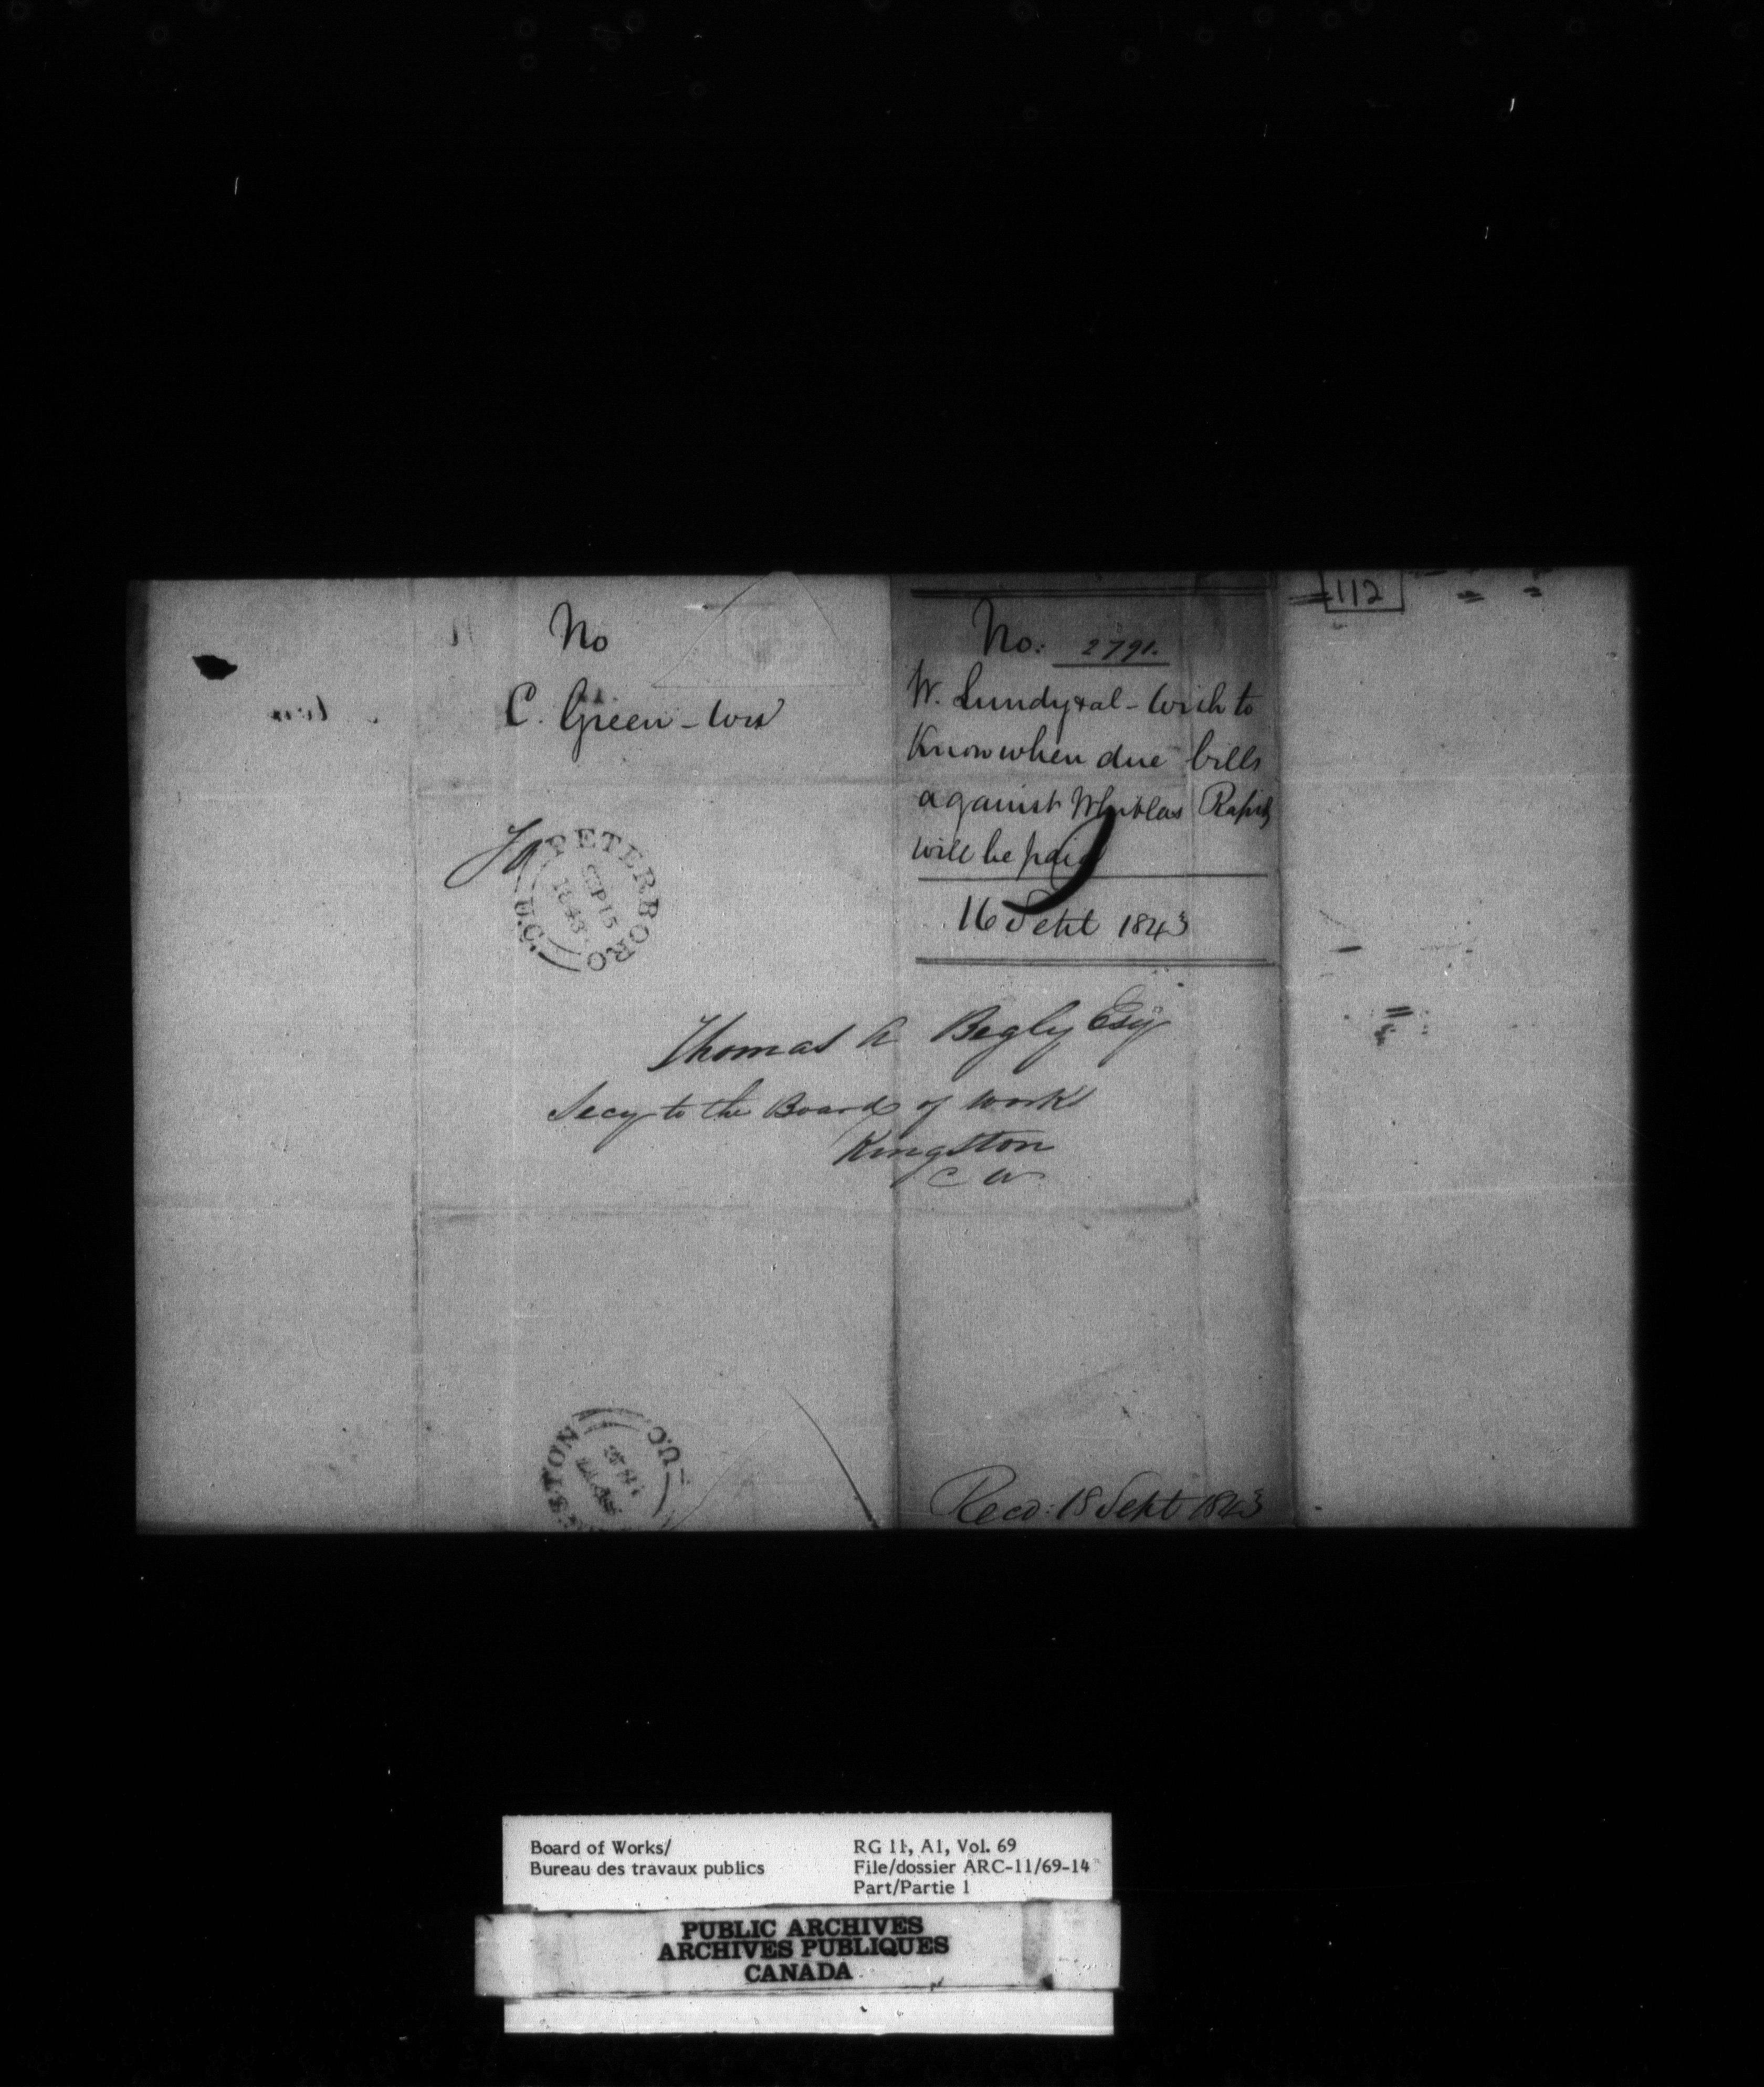 112
No
C. Green -
No: 2791.
W. Lundy & al - Wish to
Know when due bills
against Whitlas Rapids
will be paid
16 Sept 1843
PETERBORO
SEP 15
1843
U.C.
To
Thomas A Begly Esqr
Secy to the Board of Works
Kingston
C W
STON
U.C.
Recd: 18 Sept 1843
Board of Works/
Bureau des travaux publics
RG 11, A1, Vol. 69
File/dossier ARC-11/69-14
Part/Partie 1
PUBLIC ARCHIVES
ARCHIVES PUBLIQUES
CANADA